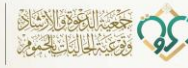 جمعية الدعوة والإرشاد
وتوعية الجاليات بالجموم